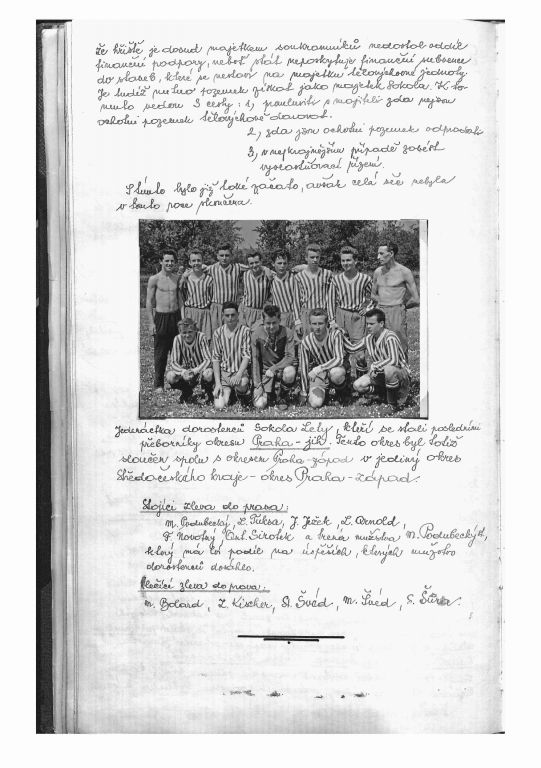 že hřiště je dosud majetkem soukromníků nedostal oddíl
finanční podpory, neboť stát neposkytuje finanční subvence
do staveb, které se nestaví na majetku tělovýchovné jednoty.
Je tudíž nutno pozemek získat jako majetek Sokola. K to-
muto vedou 3 cesty: 1, promluviti s majiteli zda nejsou
ochotni pozemek tělovýchově darovat.
2, zda jsou ochotni pozemek odprodati
3, v nejkrajnějším případě zavést
vyvlastňovací řízení.
S tímto bylo již také začato, avšak celá věc nebyla
v tomto roce skončena.
Jedenáctka dorostenců Sokola Lety, kteří se stali posledními
přeborníky okresu Praha-jih. Tento okres byl totiž
sloučen spolu s okresem Praha-západ v jediný okres
Středočeského kraje - okres Praha-západ.
Stojící zleva do prava:
M. Podubecký, L. Fuksa, J. Ježek, L. Arnold,
F. Novotný, Ant. Sirotek a trenér mužstva M. Podubecký st.,
který má též podíl na úspěších, kterých mužstvo
dorostenců dosáhlo.
Klečící zleva do prava:
M. Boland, Z. Kischer, St. Švéd, M. Švéd, S. Šůra.